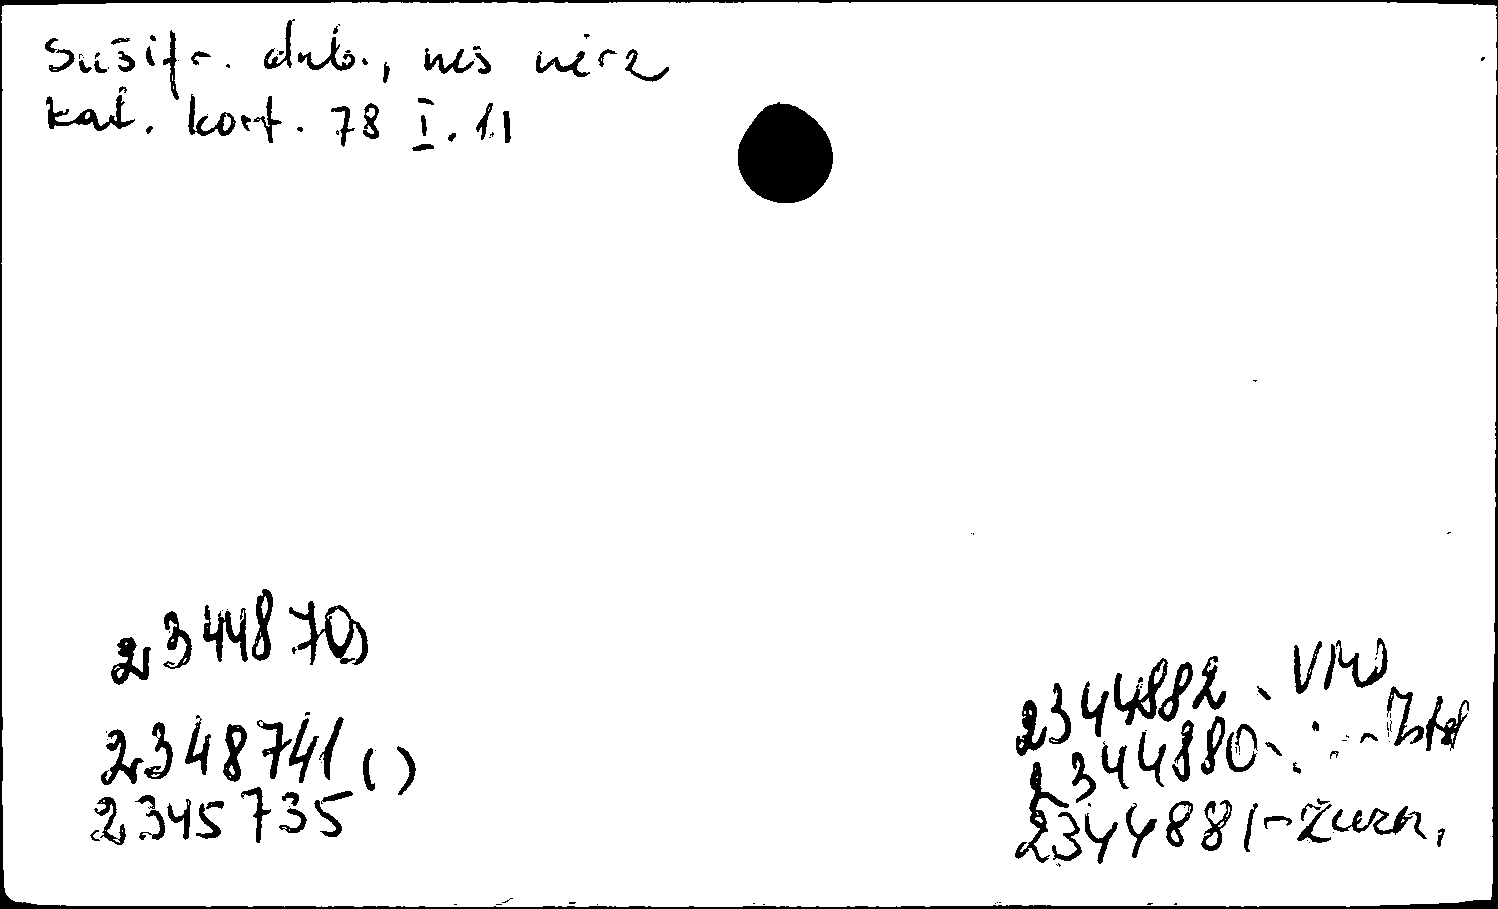 Sušifr. dub., nes nėra
kat. kort. 78 I. 11
2344870
2348741 ( )
2345735
2344882 - VMS
2344880 -
2344881 - Žurn.